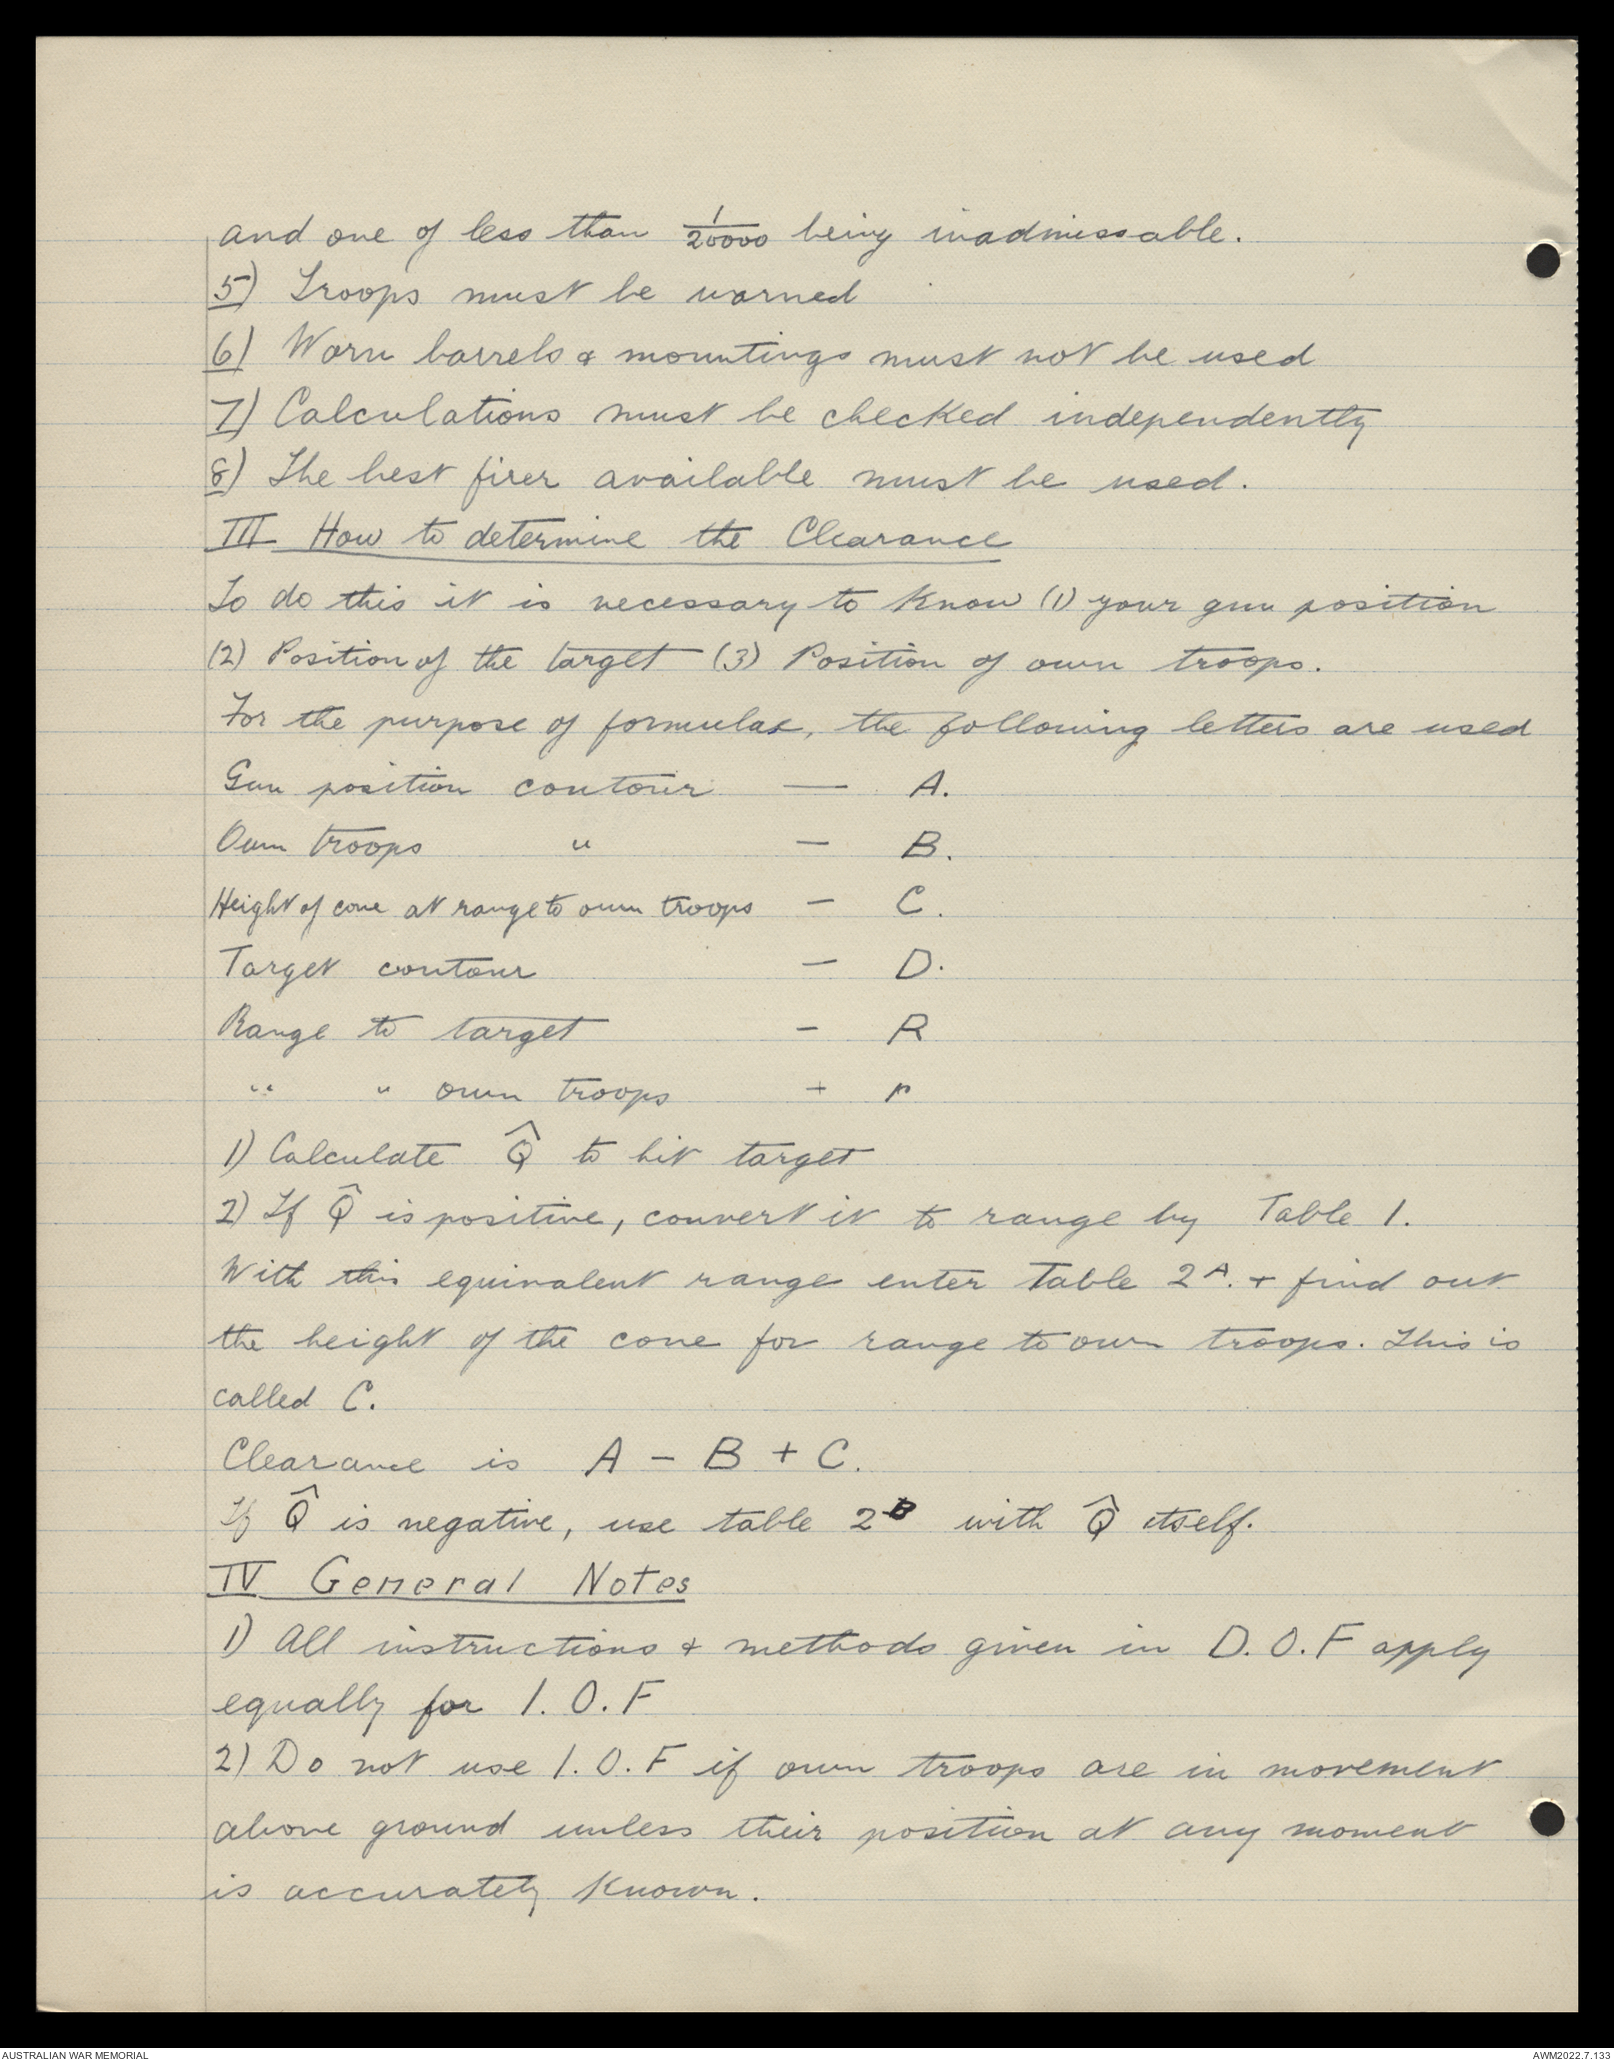 and one of less than 1/20000 being inadmissable.
5) Troops must be warned
6) Worn barrels & mountings must not be used
7) Calculations must be checked independently
8) The best firer available must be used.
III How to determine the Clearance
To do this it is necessary to know (1) your gun position
(2) Position of the target (3) Position of own troops.
For the purpose of formulae, the following letters are used
Gun position contour — A.
Own troops " — B.
Height of cone at range to own troops — C.
Target contour — D.
Range to target - R
" " own troops + r
1) Calculate Q̂ to hit target
2) If Q̂ is positive, convert it to range by Table 1.
With this equivalent range enter Table 2A. + find out
the height of the cone for range to own troops. This is
called C.
Clearance is A - B + C.
If Q̂ is negative, use table 2B with Q̂ itself.
IV General Notes
1) All instructions & methods given in D.O.F apply
equally for I.O.F
2) Do not use I.O.F if own troops are in movement
above ground unless their position at any moment
is accurately known.
AUSTRALIAN WAR MEMORIAL
AWM2022.7.133